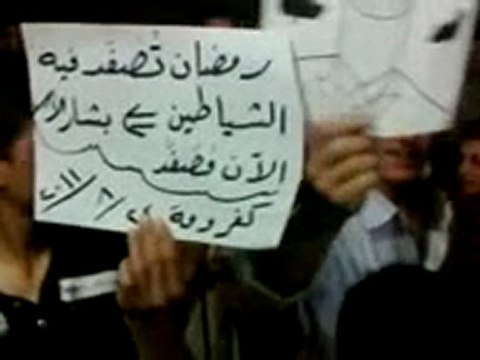 رمضان تُصَفَد فيه
الشياطين يا بشار
الآن مُصَفَد
كفرومة / ٨ / ٢٠١١